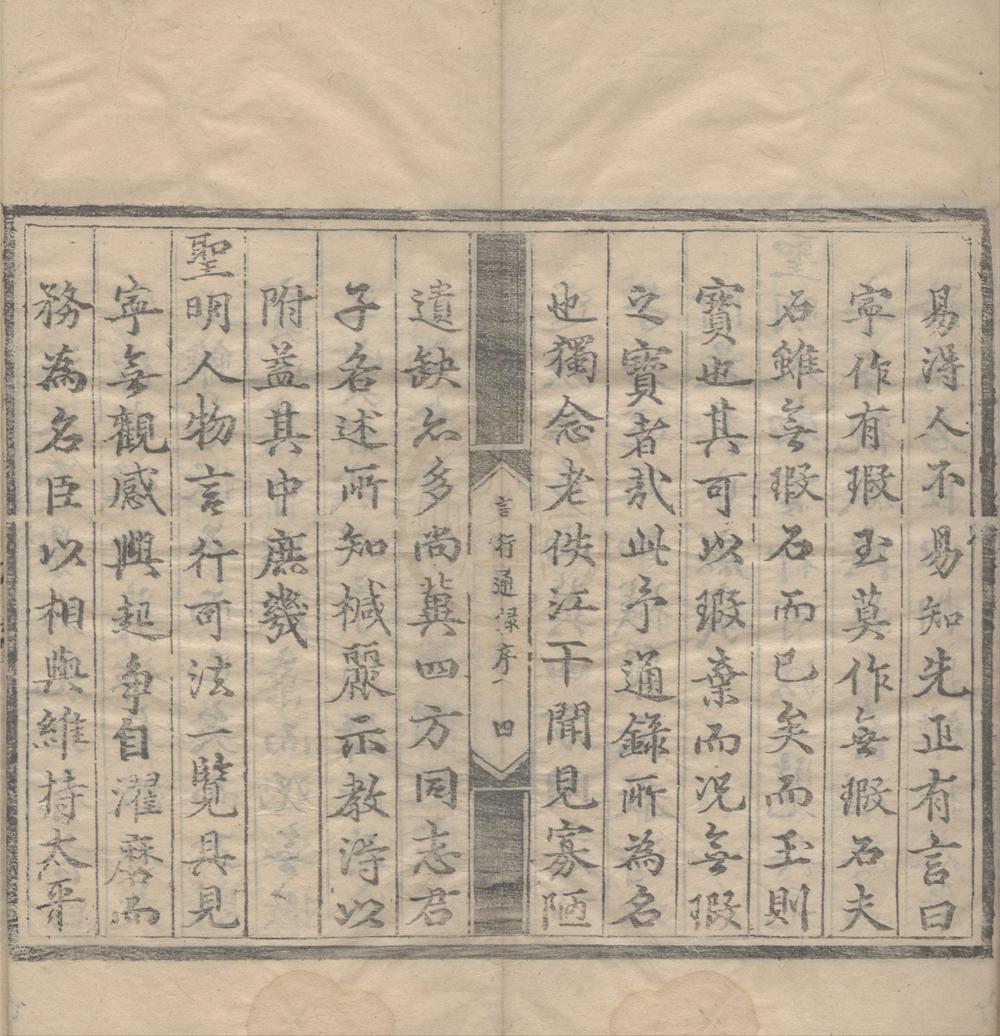 易得人不易知先正有言曰
寧作有瑕玉莫作無瑕石夫
石雖無瑕石而已矣而玉則
寶也其可以瑕棄而況無瑕
之寶者哉此予通錄所為名
也獨念老佚江干聞見寡陋
言行通錄序
四
遺缺尒多尚冀四方同志君
子各述所知椷罽示教得以
附益其中庶幾
聖明人物言行可法一覽具見
寧無觀感興起爭自濯磨而
務為名臣以相與維持太平